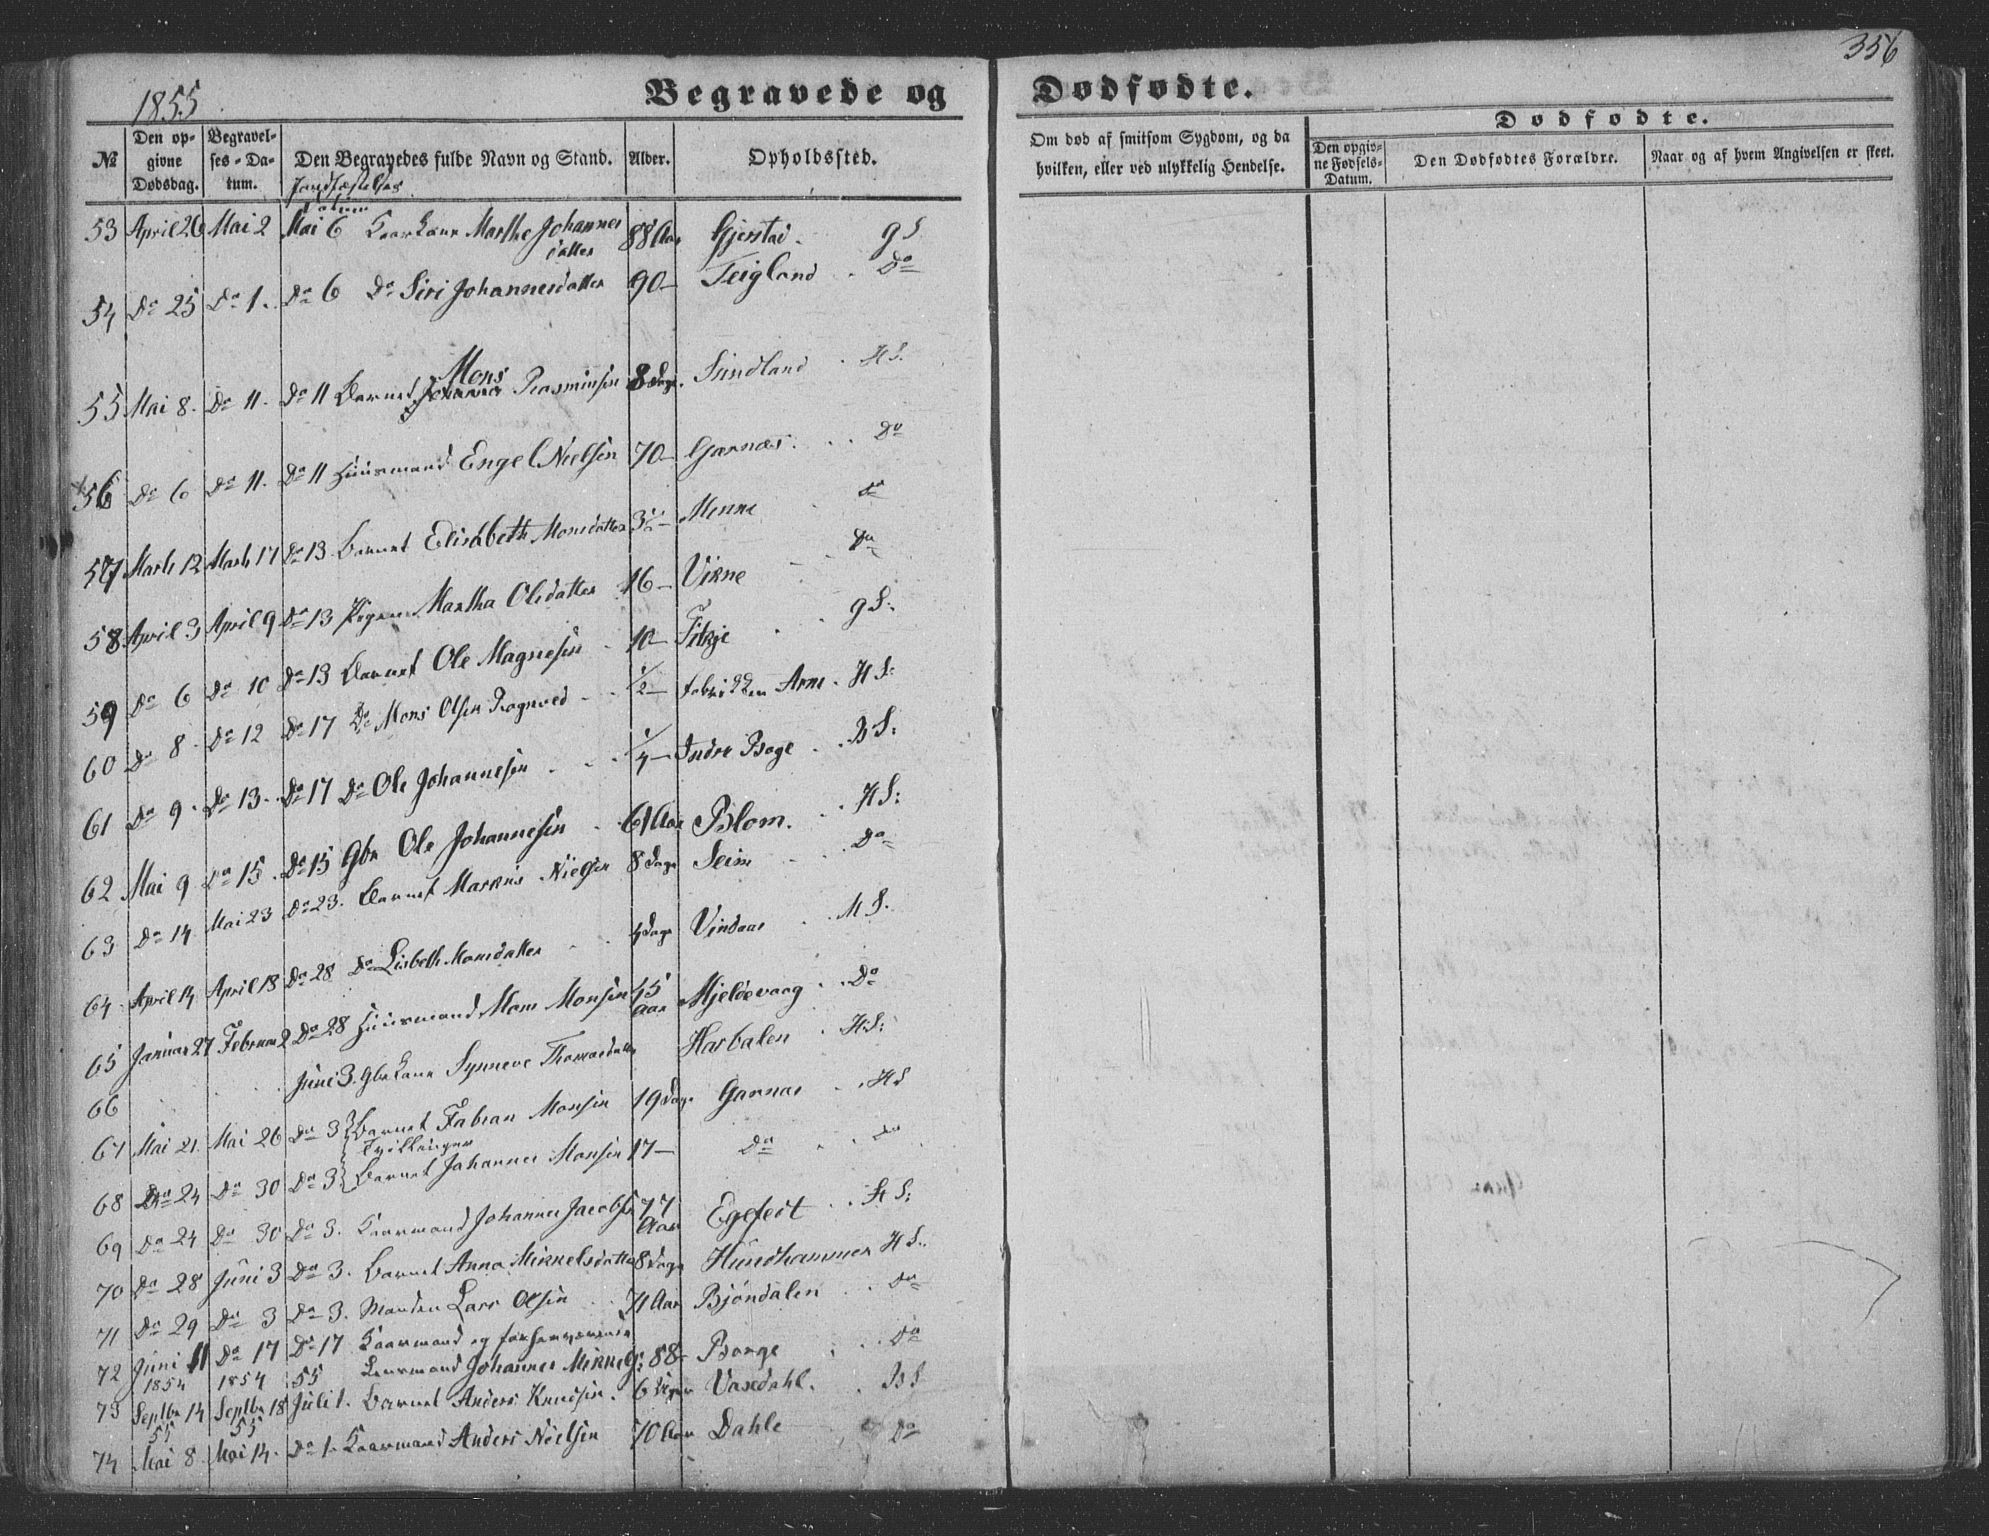 356
1855
Begravede og Dødfødte.
№ Den opgivne Dødsdag. Begravelses-Datum. Den Begravedes fulde Navn og Stand. Alder. Opholdssted. Om død af smitsom Sygdom, og da hvilken, eller ved ulykkelig Hendelse. Dødfødte. Den opgivne Fødsels-Datum. Den Dødfødtes Forældre. Naar og af hvem Angivelsen er skeet.
Jordfæstelses
Datum
53 April 26 Mai 2 Mai 6 Kaarkone Marthe Johannesdatter 88 Aar Gjerstad. g S
54 Do 25 Do 1. Do 6 Do Siri Johannesdatter 90 — Teigland . Do
55 Mai 8. Do 11. Do 11 Barnet Mons Rasmusen 8 Dage. Sundland . H S.
56 Do 6 Do 11. Do 11 Huusmand Engel Nielsen 70 — Garnæs. . . Do
57 Marts 12 Marts 17 Do 13. Barnet Elisabeth Monsdatter 3 1/2 — Menne . Do
58 April 3 April 9 Do 13 Pigen Martha Olsdatter 16 — Vikne - Do
59 Do 6 Do 10 Do 13 Barnet Ole Magnesen . 10 — Fitkje . . g S:
60 Do 8. Do 12 Do 17 Do Mons Olsen Rognved . . 1/2 — Fabrikken Arne. H S:
61 Do 9. Do 13. Do 17 Do Ole Johannesen . . . 1/4 — Indre Boge . . B S:
62 Mai 9 Do 15. Do 15 Gbr Ole Johannesen . 61 Aar Blom. . H S:
63 Do 14. Mai 23 Do 23. Barnet Markus Nielsen 8 Dage Seim . . Do
64. April 14 April 18 Do 28 Do Lisbeth Monsdatter . . 4 Dage Vindaas . . M S.
65 Januar 27 Februar 2 Do 28 Huusmand Mons Monsen 45 Aar Mjeldevaag . . Do
66 . . Juni 3. Gbrkone Synneve Thomasdatter Harbaken . H S:
67 Mai 21. Mai 26 Do 3 Barnet Fabian Monsen 19 Dage Garnæs . . H S
Tvillinger
68 Do 24 Do 30 Do 3. Barnet Johannes Monsen 17 — Do . . Do
69 Do 24 Do 30 Do 3. Kaarmand Johannes Jacobs. 77 Aar Egefeit . . H S:
70 Do 28 Juni 3 Do 3. Barnet Anna Mikkelsdatter 8 Dage Hundhammer H S.
71 Do 29 Do 3 Do 3. Manden Lars Olsen . . 71 Aar Bjöndalen . . Do
72 Juni 11 Do 17 Do 17 Kaarmand og forhenværende
Lensmand Johannes Mikkels: 88 — Boege . . Do
1854 1854 55
73 Septbr 14 Septbr 18 Juli 1. Barnet Anders Knudsen. 6 Uger Vaxdahl. . B S
55 55
74 Mai 8 Mai 14. Do 1. Kaarmand Anders Nielsen 70 Aar Dahle . Do